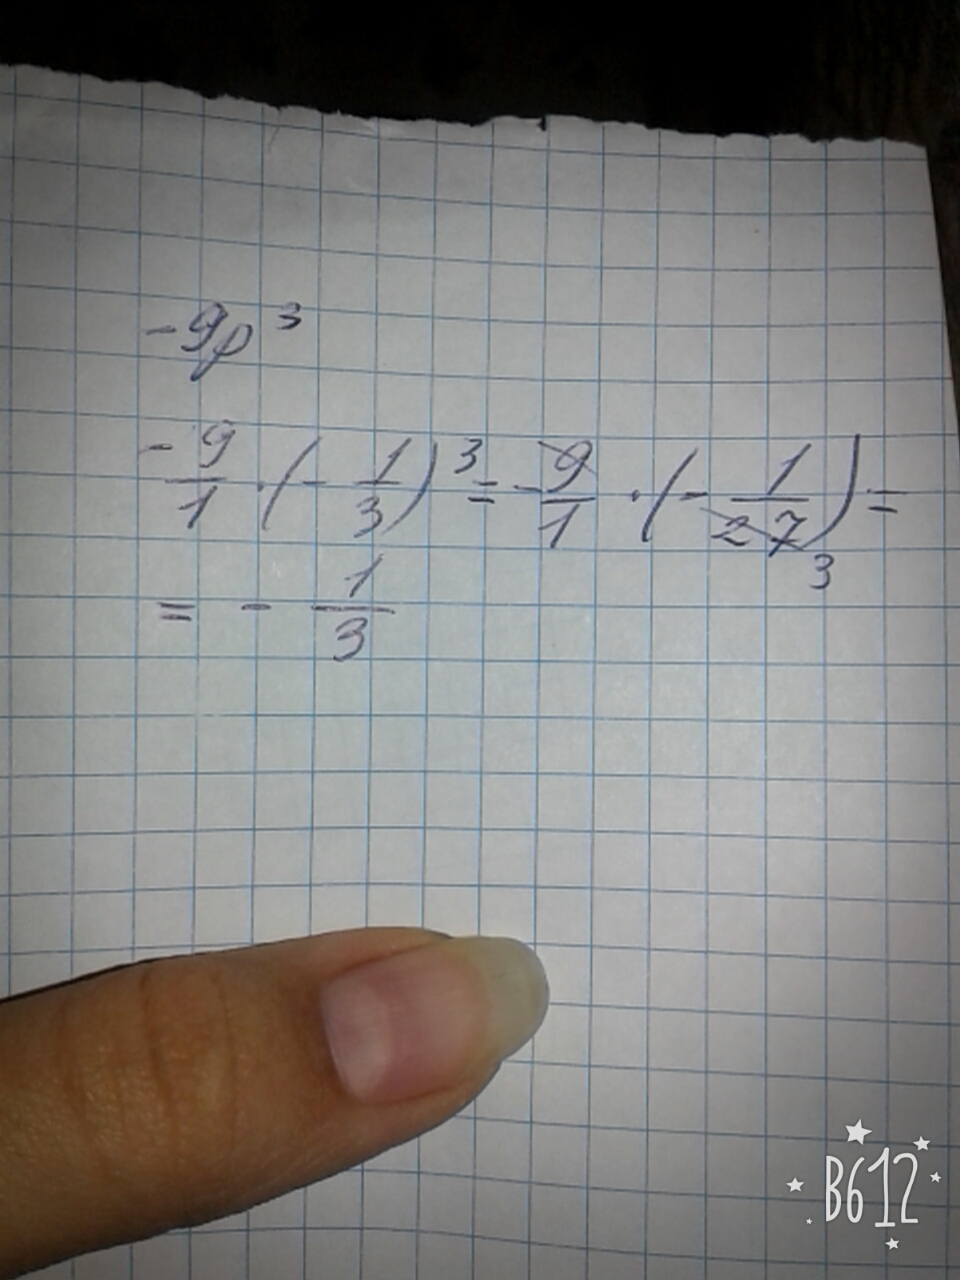 -9p³
-9/1 · (- 1/3)³ = - 9/1 · (- 1/27) =
3
= - 1/3
B612